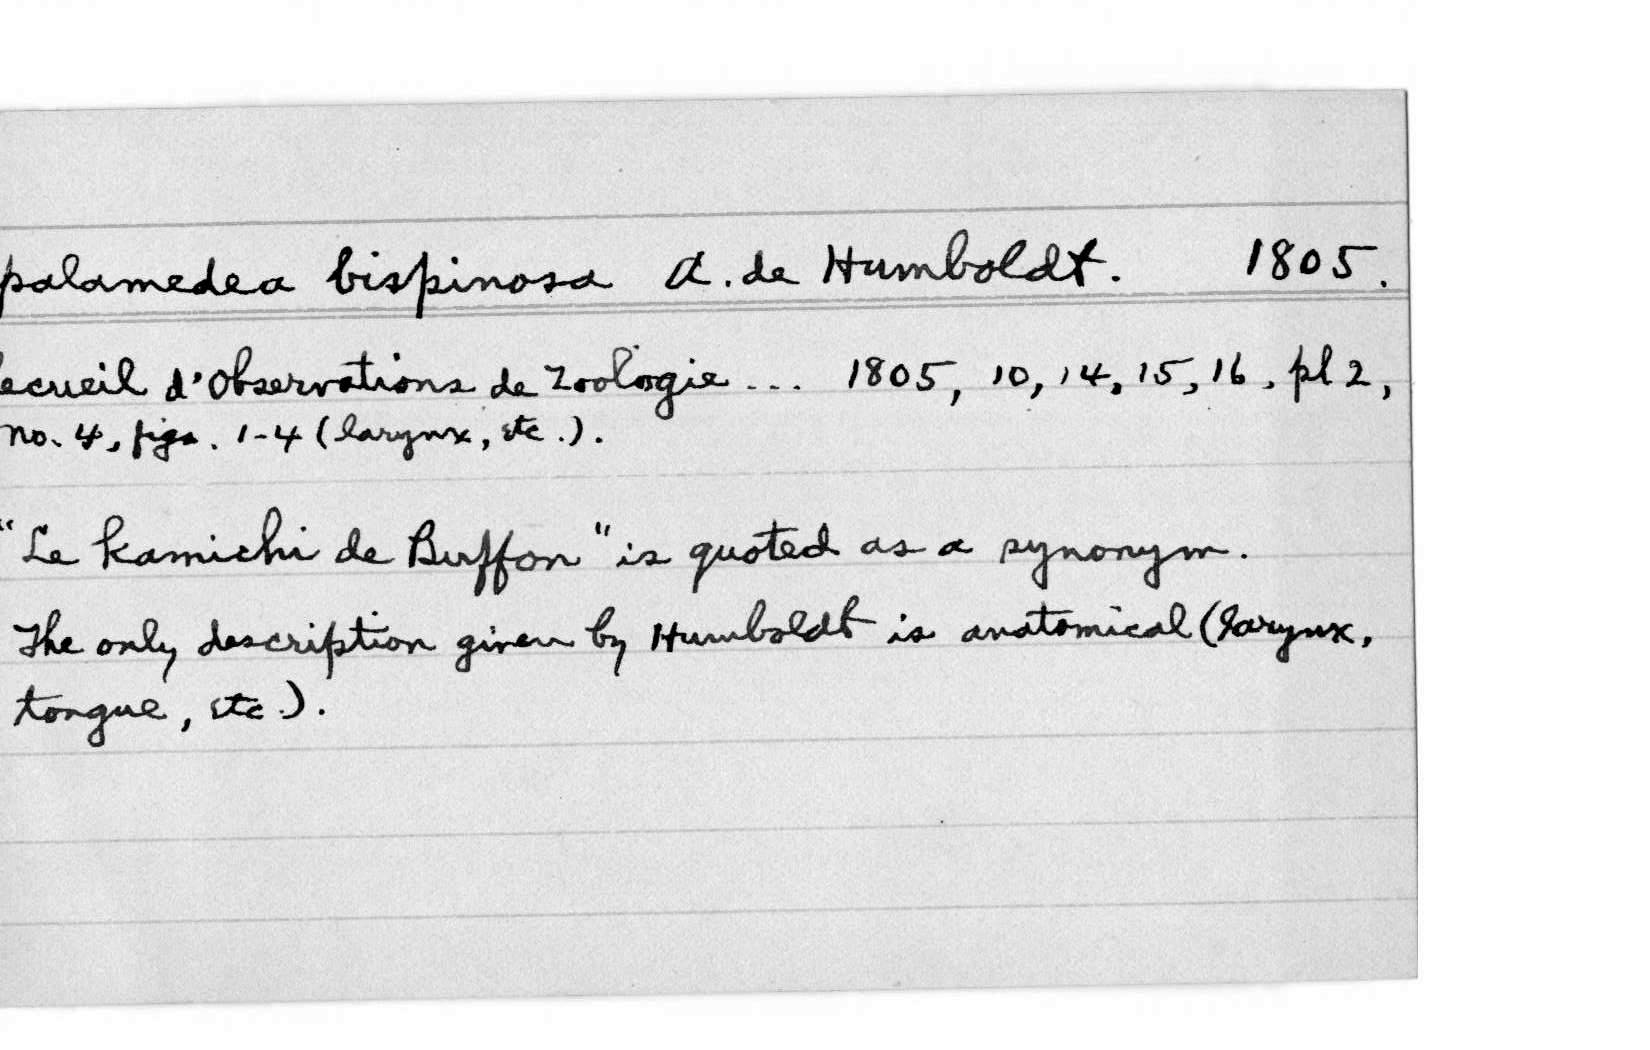 palamedea bispinosa A. de Humboldt. 1805.
ecueil d'Observations de Zoologie... 1805, 10, 14, 15, 16, pl 2,
no. 4, figs. 1-4 (larynx, etc.).
"Le kamichi de Buffon" is quoted as a synonym.
The only description given by Humboldt is anatomical (larynx,
tongue, etc.).